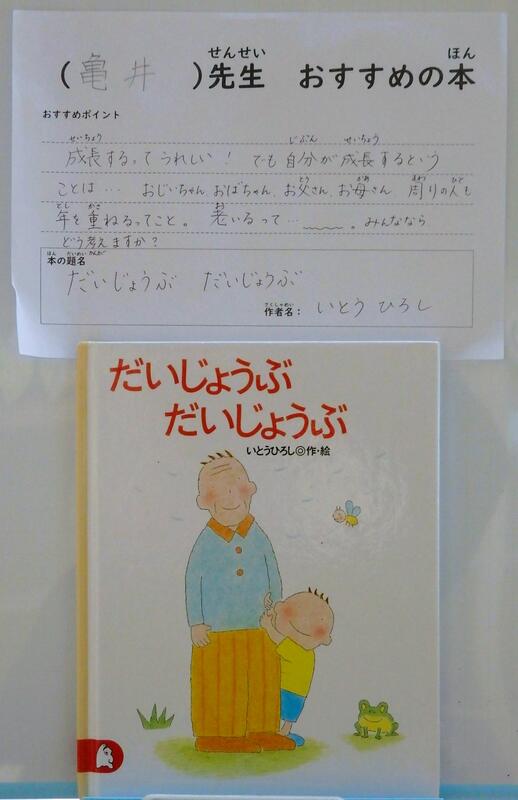 （ 亀井 ）先生　おすすめの本
おすすめポイント
成長するってうれしい！ でも自分が成長するという
ことは… おじいちゃん、おばちゃん、お父さん、お母さん、周りの人も
年を重ねるってこと。 老いるって…〰。みんななら
どう考えますか？
本の題名
だいじょうぶ　だいじょうぶ
作者名： いとう ひろし
だいじょうぶ
だいじょうぶ
いとうひろし◎作・絵